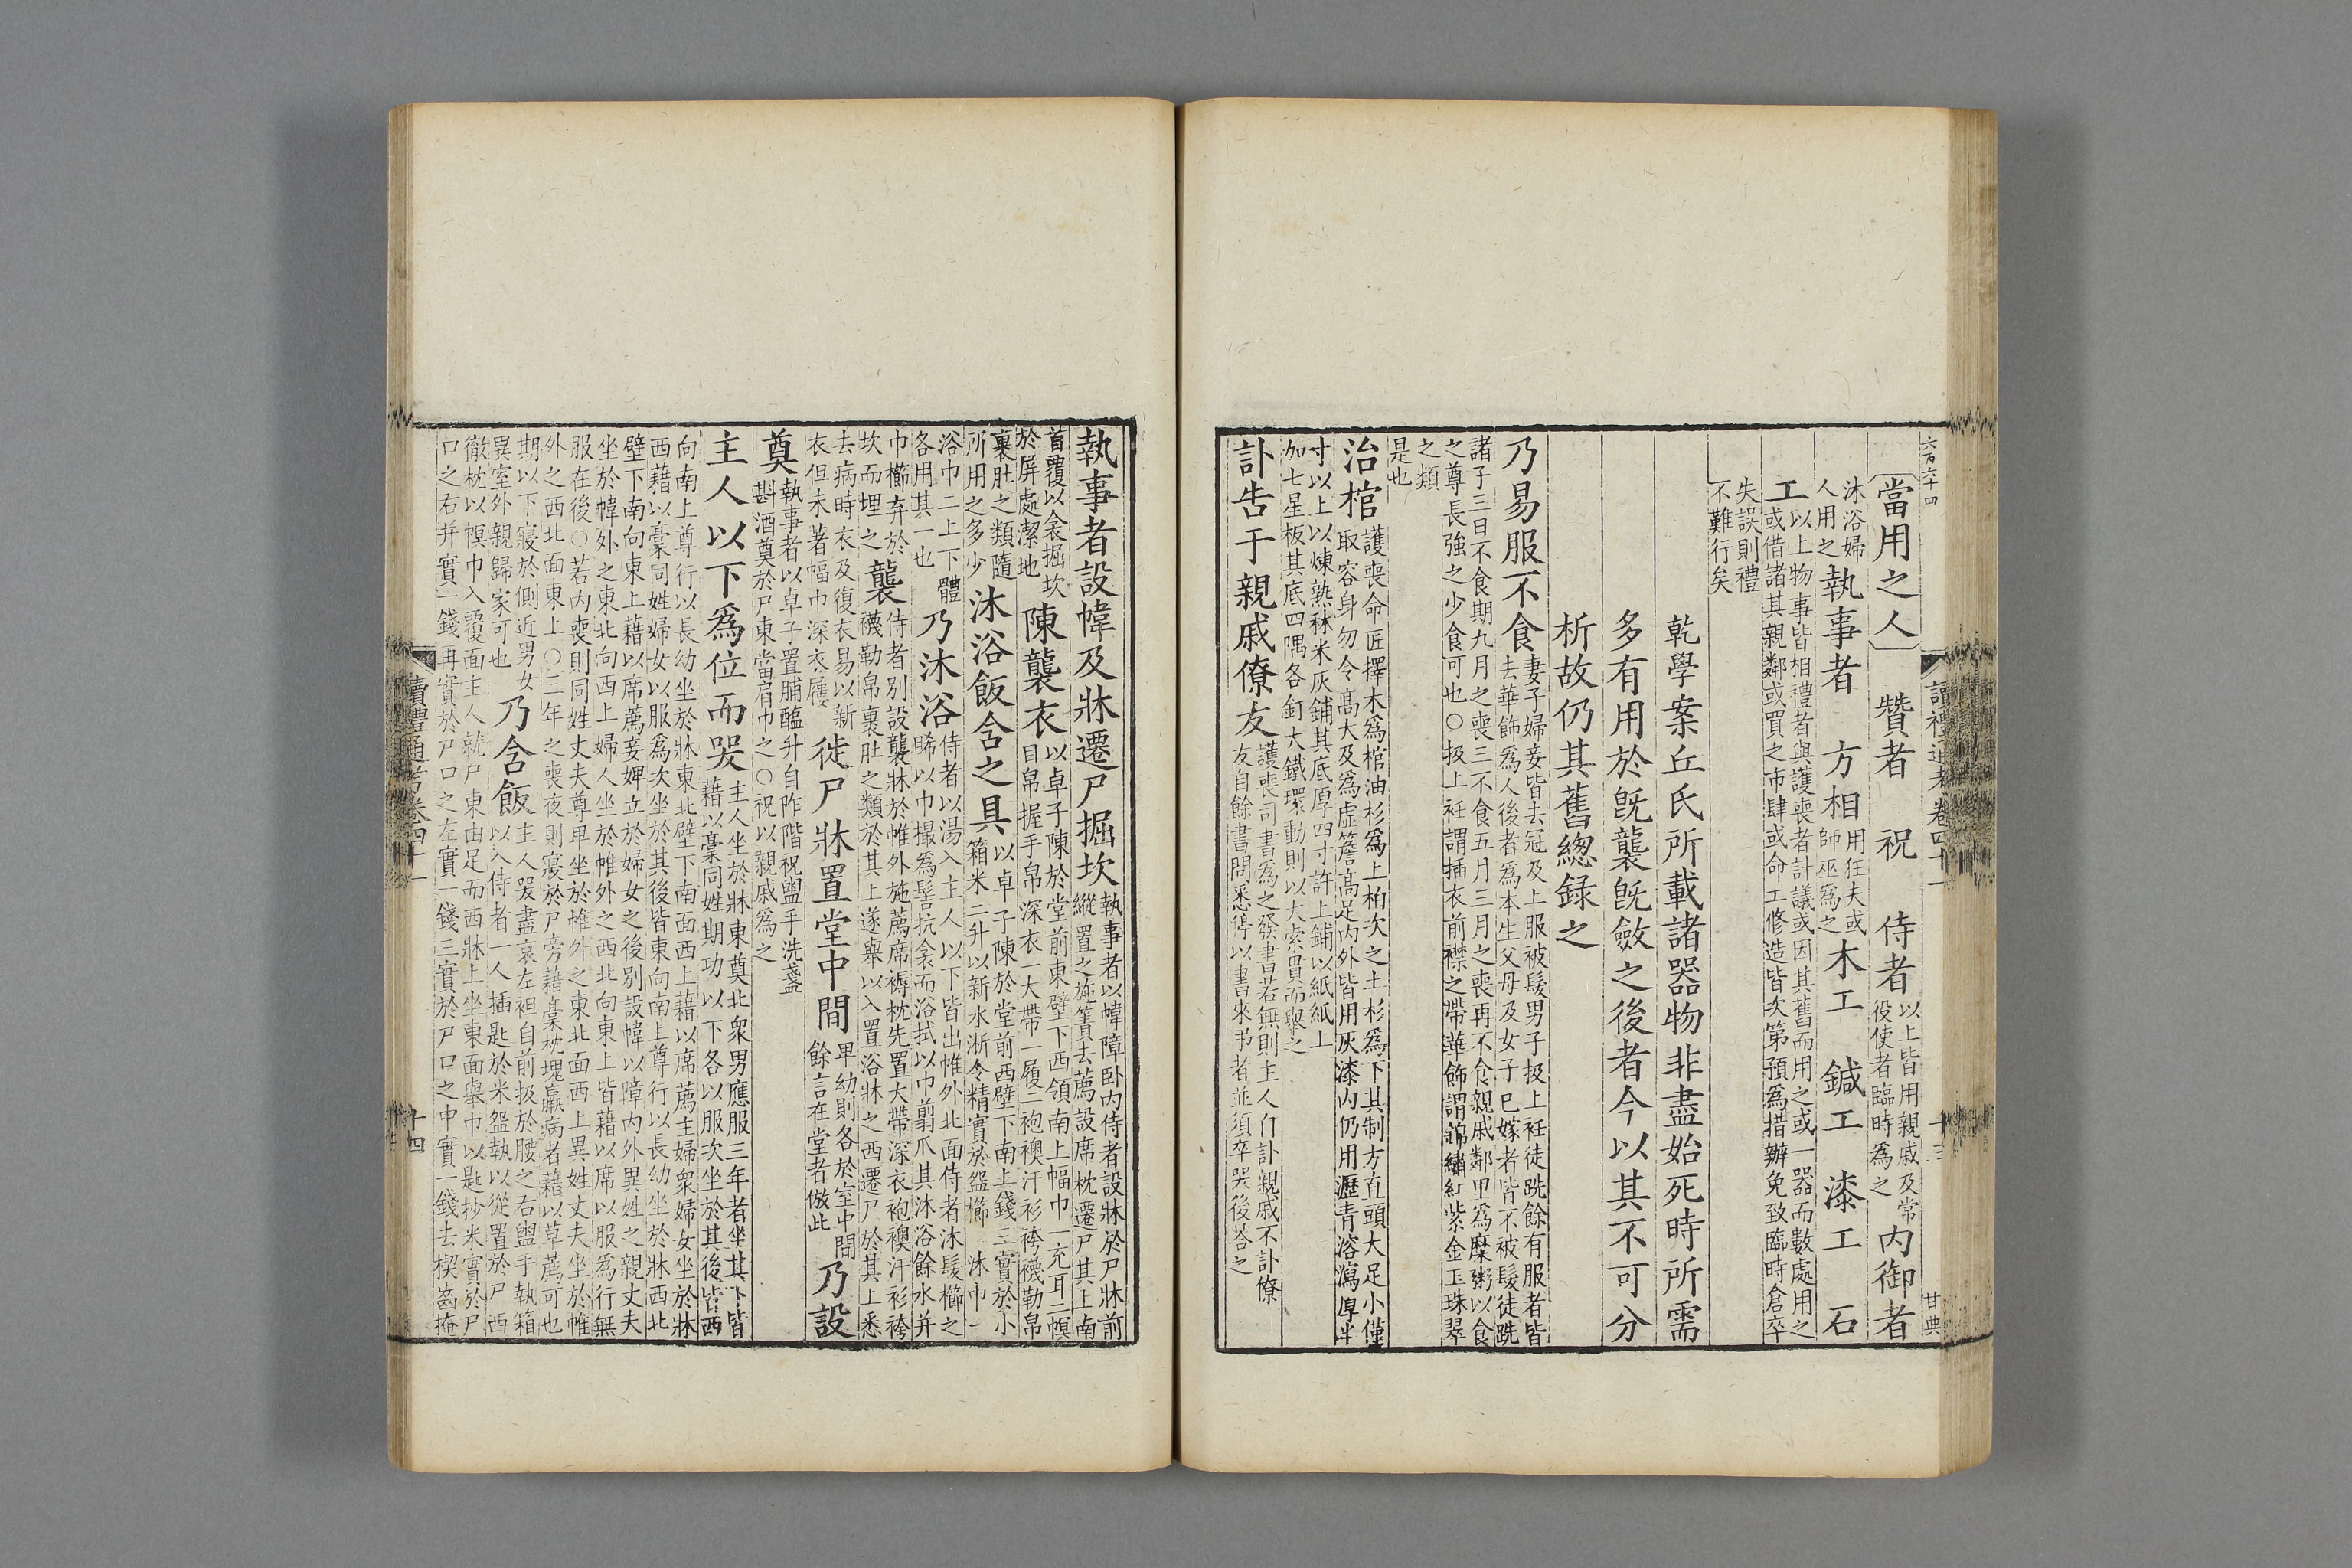 六百六十四
讀禮通考卷四十一
十三
甘典
當用之人 贊者 祝 侍者以上皆用親戚及常役使者臨時爲之內御者
沐浴婦人用之執事者 方相用狂夫或師巫爲之木工 鍼工 漆工 石
工以上物事皆相禮者與護喪者計議或因其舊而用之或一器而數處用之或借諸其親鄰或買之市肆或命工修造皆次第預爲措辦免致臨時倉卒
失誤則禮不難行矣
乾學案丘氏所載諸器物非盡始死時所需
多有用於旣襲旣斂之後者今以其不可分
析故仍其舊緫録之
乃易服不食妻子婦妾皆去冠及上服被髮男子扱上衽徒跣餘有服者皆去華飾爲人後者爲本生父母及女子已嫁者皆不被髮徒跣
諸子三日不食期九月之喪三不食五月三月之喪再不食親戚鄰里爲糜粥以食之尊長強之少食可也○扱上衽謂插衣前襟之帶華飾謂錦繡紅紫金玉珠翠
之類是也
治棺護喪命匠擇木爲棺油杉爲上柏次之土杉爲下其制方直頭大足小僅取容身勿令髙大及爲虛簷髙足內外皆用灰漆內仍用瀝青溶瀉厚半
寸以上以煉熟秫米灰鋪其底厚四寸許上鋪以紙紙上加七星板其底四隅各釘大鐵環動則以大索貫而舉之
訃告于親戚僚友護喪司書爲之發書若無則主人自訃親戚不訃僚友自餘書問悉停以書來弔者並須卒哭後荅之
執事者設幃及牀遷尸掘坎執事者以幃障卧內侍者設牀於尸牀前縱置之施簀去薦設席枕遷尸其上南
首覆以衾掘坎於屏處潔地陳襲衣以卓子陳於堂前東壁下西領南上幅巾一充耳二幎目帛握手帛深衣一大帶一履二袍襖汗衫袴襪勒帛
裹肚之類隨所用之多少沐浴飯含之具以卓子陳於堂前西壁下南上錢三實於小箱米二升以新水淅令精實於盌櫛一沐巾一
浴巾二上下體各用其一也乃沐浴侍者以湯入主人以下皆出帷外北面侍者沐髮櫛之晞以巾撮爲髻抗衾而浴拭以巾翦爪其沐浴餘水并
巾櫛弃於坎而埋之襲侍者別設襲牀於帷外施薦席褥枕先置大帶深衣袍襖汗衫袴襪勒帛裹肚之類於其上遂舉以入置浴牀之西遷尸於其上悉
去病時衣及復衣易以新衣但未著幅巾深衣屨徙尸牀置堂中間卑幼則各於室中間餘言在堂者倣此乃設
奠執事者以卓子置脯醢升自阼階祝盥手洗盞斟酒奠於尸東當肩巾之○祝以親戚爲之
主人以下爲位而哭主人坐於牀東奠北衆男應服三年者坐其下皆藉以稾同姓期功以下各以服次坐於其後皆西
向南上尊行以長幼坐於牀東北壁下南面西上藉以席薦主婦衆婦女坐於牀西藉以稾同姓婦女以服爲次坐於其後皆東向南上尊行以長幼坐於牀西北
壁下南向東上藉以席薦妾婢立於婦女之後別設幃以障內外異姓之親丈夫坐於幃外之東北向西上婦人坐於帷外之西北向東上皆藉以席以服爲行無
服在後○若內喪則同姓丈夫尊卑坐於帷外之東北面西上異姓丈夫坐於帷外之西北面東上○三年之喪夜則寢於尸旁藉稾枕塊羸病者藉以草薦可也
期以下寢於側近男女異室外親歸家可也乃含飯主人哭盡哀左袒自前扱於腰之右盥手執箱以入侍者一人插匙於米盌執以從置於尸西
徹枕以幎巾入覆面主人就尸東由足而西牀上坐東面舉巾以匙抄米實於尸口之右并實一錢再實於尸口之左實一錢三實於尸口之中實一錢去楔齒掩
讀禮通考卷四十一
十四